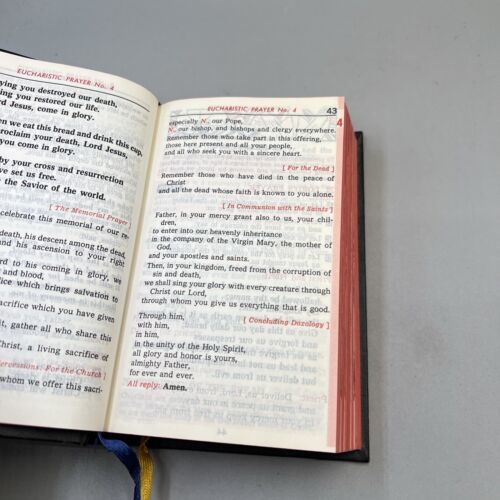 EUCHARISTIC PRAYER No. 4
ying you destroyed our death,
ing you restored our life.
rd Jesus, come in glory.
en we eat this bread and drink this cup,
roclaim your death, Lord Jesus,
you come in glory.
by your cross and resurrection
ve set us free.
the Savior of the world.
[ The Memorial Prayer ]
celebrate this memorial of our re-
death, his descent among the dead,
and his ascension to your right
rd to his coming in glory, we
and blood,
fice which brings salvation to
acrifice which you have given
it, gather all who share this
Christ, a living sacrifice of
ercessions: For the Church ]
whom we offer this sacri-
EUCHARISTIC PRAYER No. 4 43
4
especially N., our Pope,
N., our bishop, and bishops and clergy everywhere.
Remember those who take part in this offering,
those here present and all your people,
and all who seek you with a sincere heart.
[ For the Dead ]
Remember those who have died in the peace of
Christ
and all the dead whose faith is known to you alone.
[ In Communion with the Saints ]
Father, in your mercy grant also to us, your chil-
dren,
to enter into our heavenly inheritance
in the company of the Virgin Mary, the mother of
God,
and your apostles and saints.
Then, in your kingdom, freed from the corruption of
sin and death,
we shall sing your glory with every creature through
Christ our Lord,
through whom you give us everything that is good.
[ Concluding Doxology ]
Through him,
with him,
in him,
in the unity of the Holy Spirit,
all glory and honor is yours,
almighty Father,
for ever and ever.
All reply: Amen.